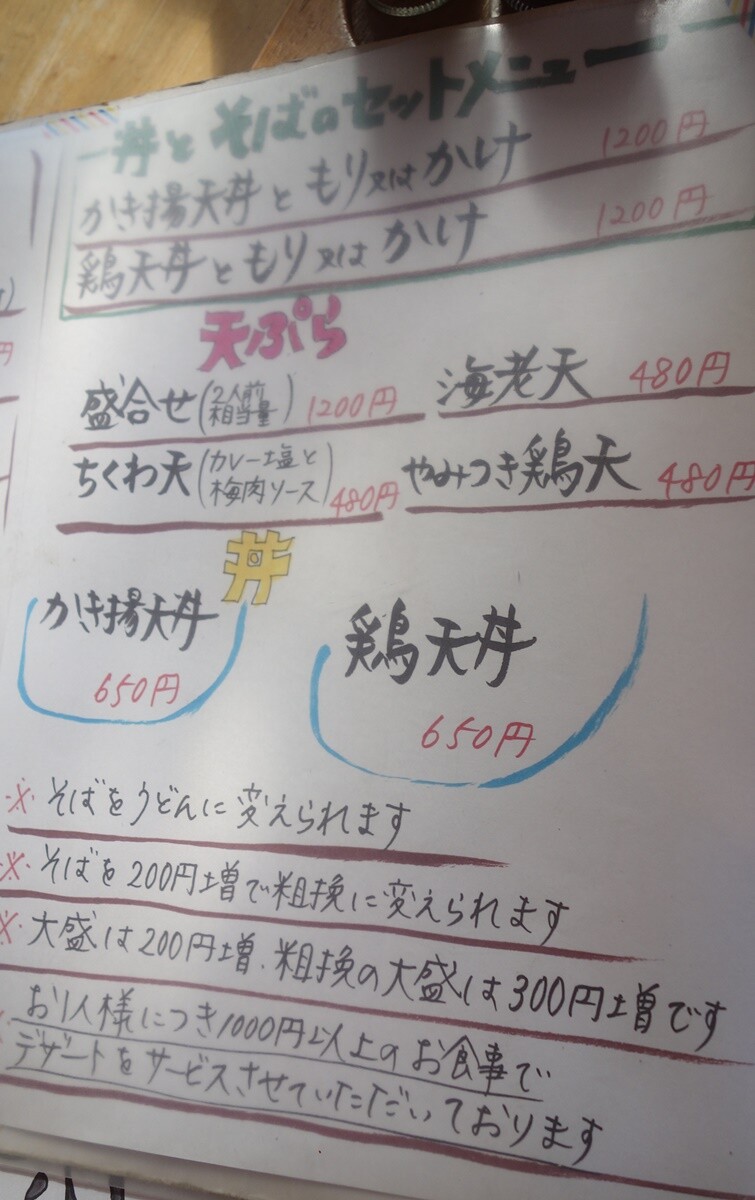 丼とそばのセットメニュー
かき揚天丼ともり又はかけ 1200円
鶏天丼ともり又はかけ 1200円
天ぷら
盛合せ(2人前相当量) 1200円
海老天 480円
ちくわ天(カレー塩と梅肉ソース) 480円
やみつき鶏天 480円
丼
かき揚天丼
650円
鶏天丼
650円
※そばをうどんに変えられます
※そばを200円増で粗挽に変えられます
※大盛は200円増.粗挽の大盛は300円増です
お1人様につき1000円以上のお食事で
デザートをサービスさせていただいております